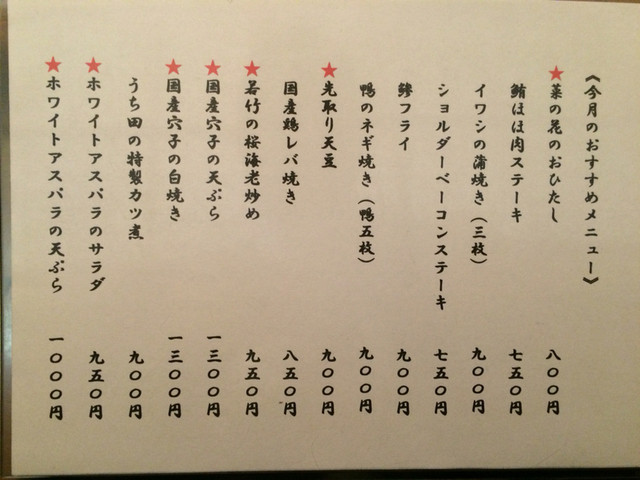 《今月のおすすめメニュー》
★菜の花のおひたし 八〇〇円
鮪ほほ肉ステーキ 七五〇円
イワシの蒲焼き(三枚) 九〇〇円
ショルダーベーコンステーキ 七五〇円
鯵フライ 九〇〇円
鴨のネギ焼き(鴨五枚) 九〇〇円
★先取り天豆 九〇〇円
国産鶏レバ焼き 八五〇円
★若竹の桜海老炒め 九五〇円
★国産穴子の天ぷら 一三〇〇円
★国産穴子の白焼き 一三〇〇円
うち田の特製カツ煮 九〇〇円
★ホワイトアスパラのサラダ 九五〇円
★ホワイトアスパラの天ぷら 一〇〇〇円